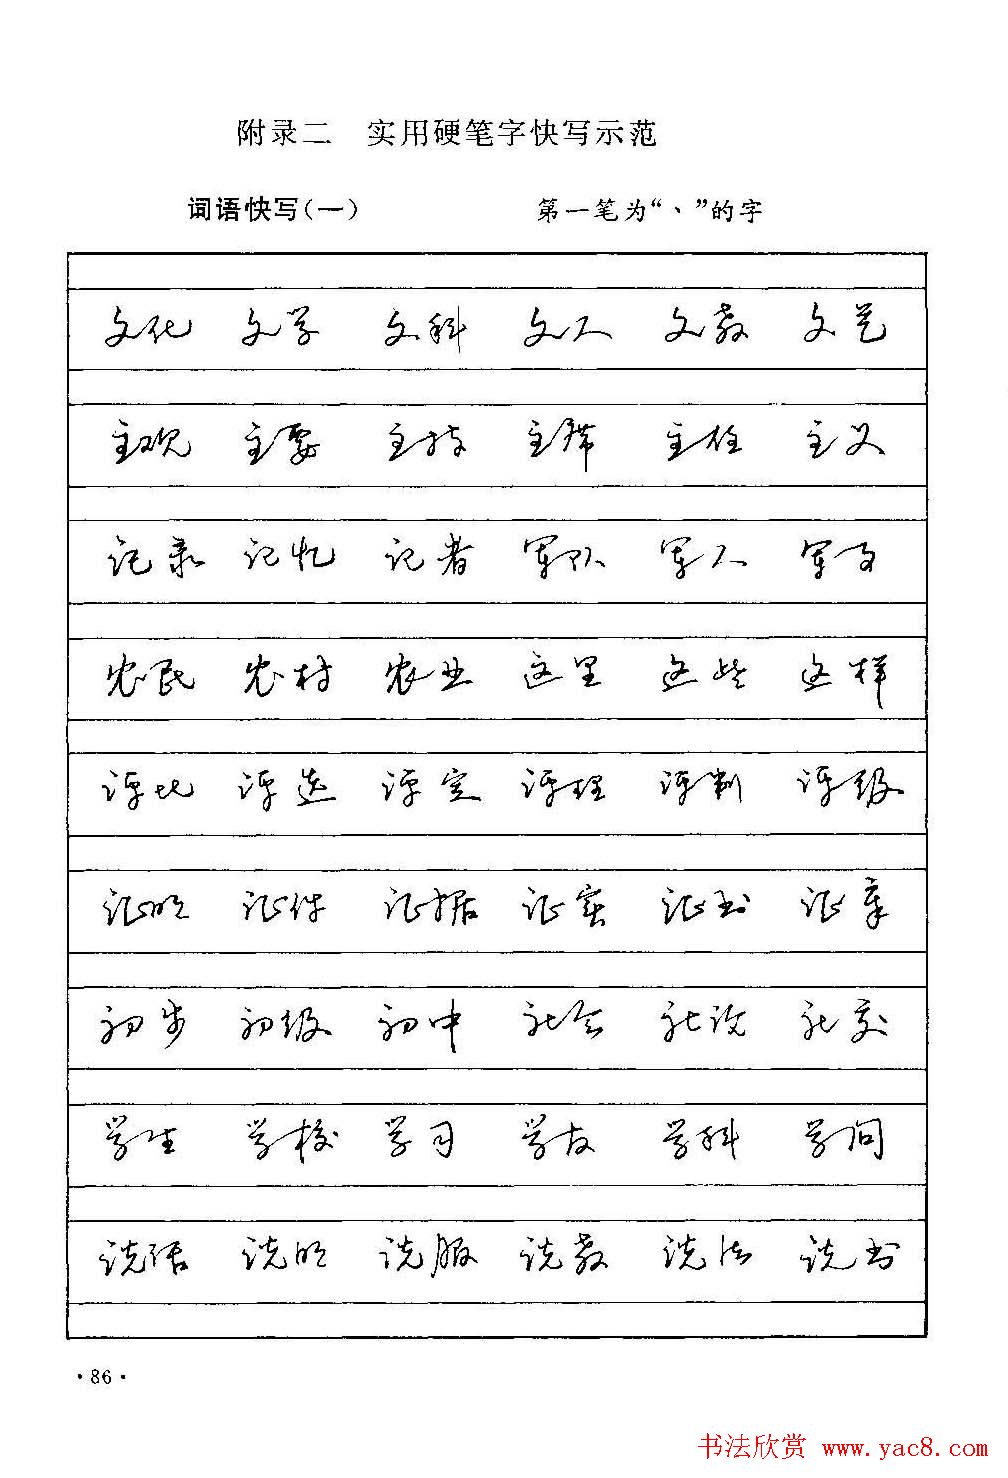 附录二 实用硬笔字快写示范
词语快写(一) 第一笔为“、”的字
文化 文学 文科 文人 文教 文艺
主观 主要 主持 主席 主任 主义
记录 记忆 记者 军队 军人 军政
农民 农村 农业 这里 这些 这样
评比 评选 评定 评理 评判 评级
证明 证件 证据 证实 证书 证章
初步 初级 初中 社会 社论 社交
学生 学校 学习 学友 学科 学问
说话 说明 说服 说教 说法 说书
·86·
书法欣赏 www.yac8.com